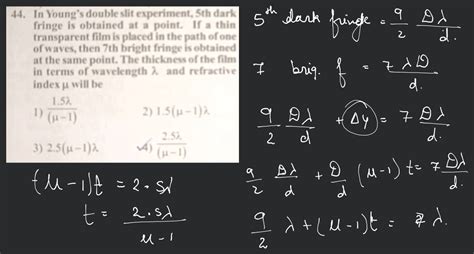 44. In Young's double slit experiment, 5th dark
fringe is obtained at a point. If a thin
transparent film is placed in the path of one
of waves, then 7th bright fringe is obtained
at the same point. The thickness of the film
in terms of wavelength λ and refractive
index μ will be
1) 1.5λ/(μ−1)
2) 1.5(μ−1)λ
3) 2.5(μ−1)λ
4) 2.5λ/(μ−1)
(μ−1)t = 2.5λ
t = 2.5λ/μ−1
5th dark fringe = 9/2 Dλ/d.
7 brig. f = 7λD/d.
9/2 Dλ/d + Δy = 7Dλ/d.
9/2 Dλ/d + D/d (μ−1)t = 7Dλ/d
9/2 λ + (μ−1)t = 7λ